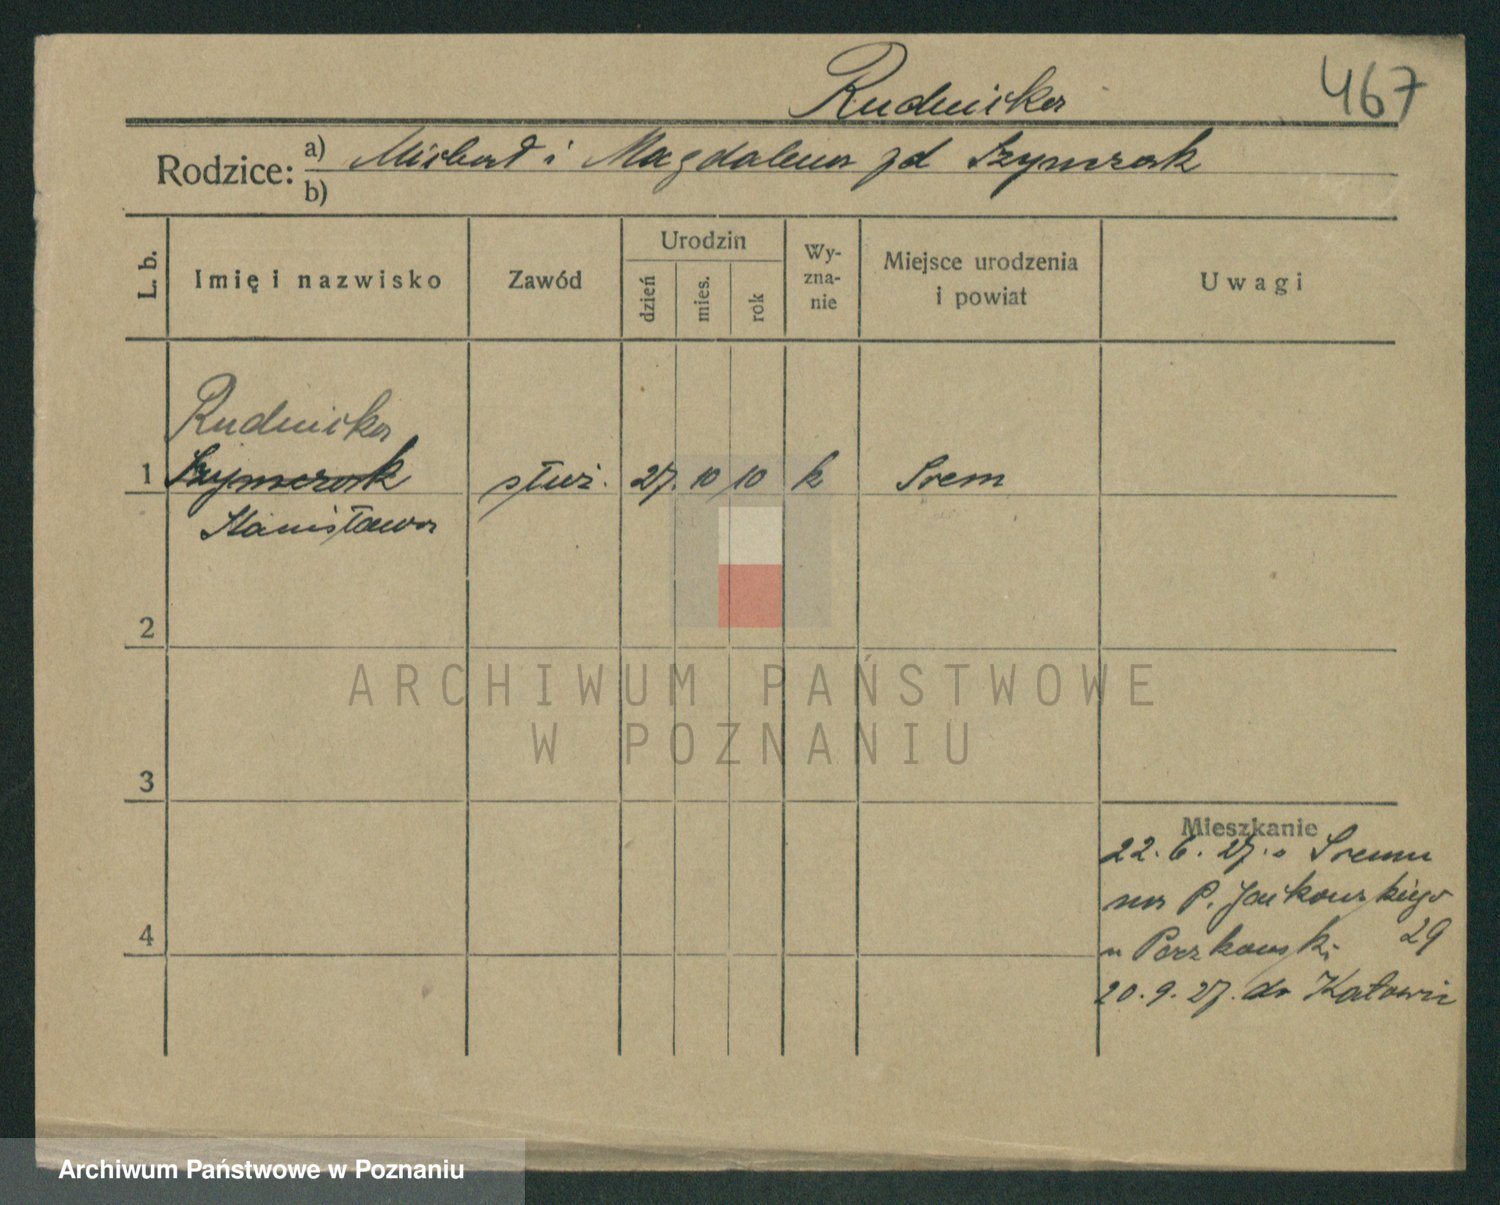 Rudnicka
467
Rodzice: a) Michał i Magdalena zd Szymczak
b)
L. b.
Imię i nazwisko
Zawód
Urodzin
dzień
mies.
rok
Wy-
zna-
nie
Miejsce urodzenia
i powiat
Uwagi
Rudnicka
1 Szymczak służ. 27. 10 10 k Śrem
Stanisława
2
3
4
Mieszkanie
22. 6. 27. z Śremu
na P. 29
u
20. 9. 27. do Katowic
ARCHIWUM PAŃSTWOWE
W POZNANIU
Archiwum Państwowe w Poznaniu